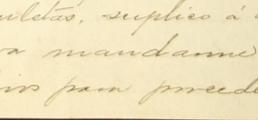 uletas, suplico á
mandarme
ios para procede